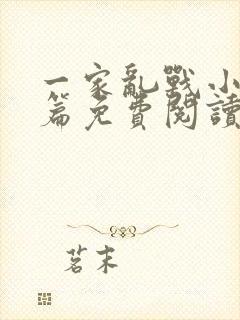 一家亂戰小
篇免費閱讀
茗末